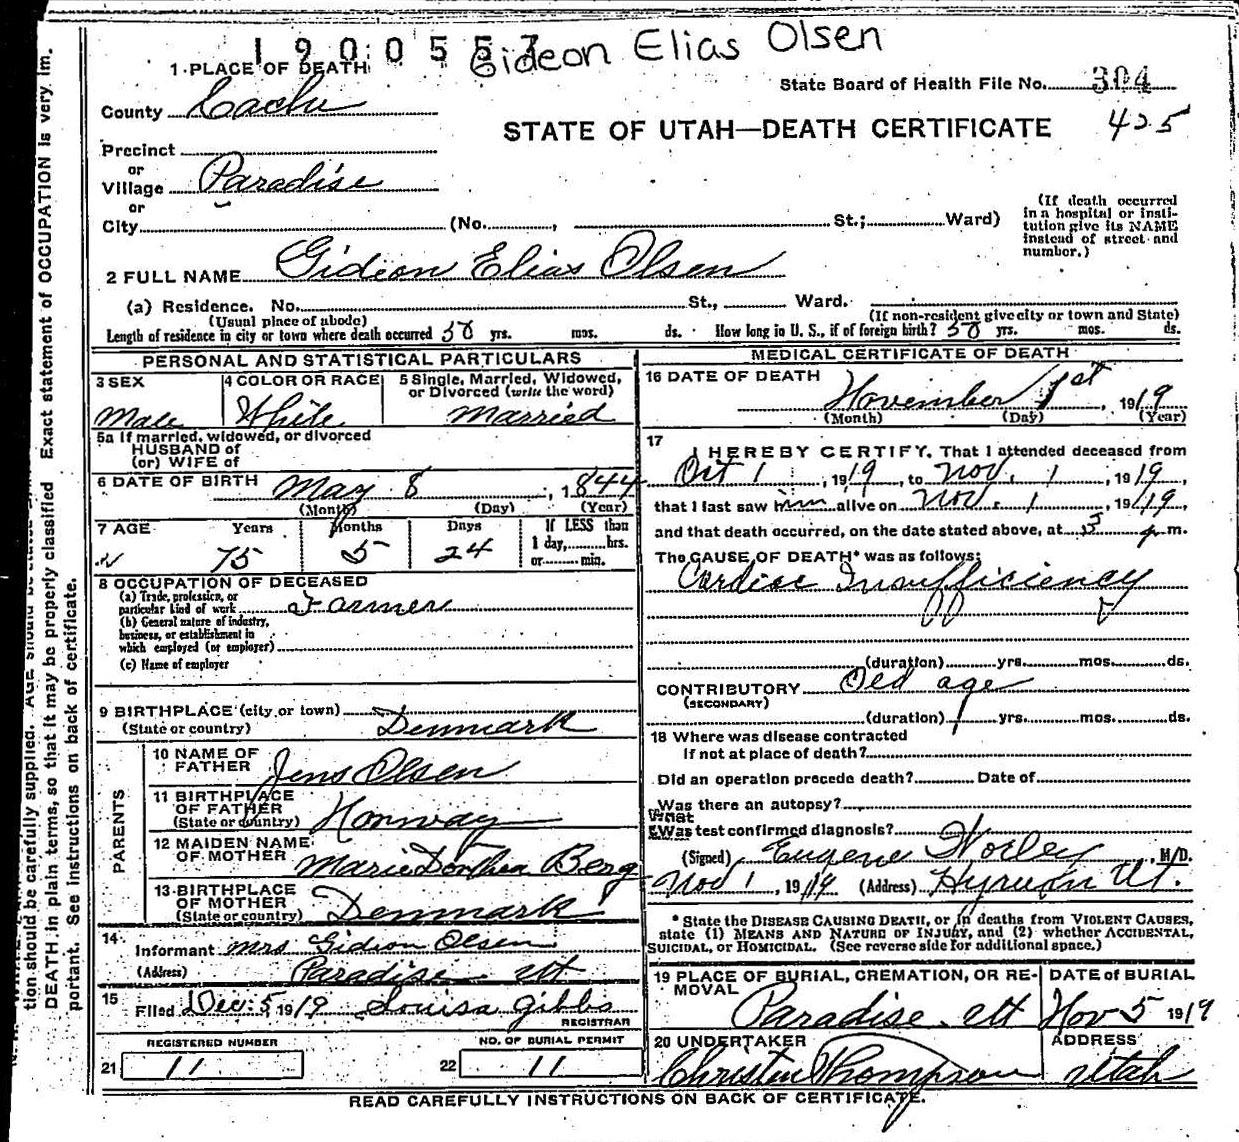 1900557 Gideon Elias Olsen
1 PLACE OF DEATH
State Board of Health File No. 304
County Cache
STATE OF UTAH—DEATH CERTIFICATE 425
Precinct
or
Village Paradise
or
City (No. , St.; Ward)
(If death occurred in a hospital or institution give its NAME instead of street and number.)
2 FULL NAME Gideon Elias Olsen
(a) Residence. No. St., Ward.
(Usual place of abode) (If non-resident give city or town and State)
Length of residence in city or town where death occurred 50 yrs. mos. ds. How long in U. S., if of foreign birth? 50 yrs. mos. ds.
PERSONAL AND STATISTICAL PARTICULARS
3 SEX 4 COLOR OR RACE 5 Single, Married, Widowed,
or Divorced (write the word)
Male White Married
5a If married, widowed, or divorced
HUSBAND of
(or) WIFE of
6 DATE OF BIRTH May 8, 1844
(Month) (Day) (Year)
7 AGE Years Months Days If LESS than
75 5 24 1 day, hrs.
or min.
8 OCCUPATION OF DECEASED
(a) Trade, profession, or
particular kind of work Farmer
(b) General nature of industry,
business, or establishment in
which employed (or employer)
(c) Name of employer
9 BIRTHPLACE (city or town)
(State or country) Denmark
PARENTS
10 NAME OF
FATHER Jens Olsen
11 BIRTHPLACE
OF FATHER
(State or country) Norway
12 MAIDEN NAME
OF MOTHER Marie Dorthea Berg
13 BIRTHPLACE
OF MOTHER
(State or country) Denmark
14
Informant Mrs Gideon Olsen
(Address) Paradise Ut
15 Filed Dec 5 1919 Louisa Gibbs
REGISTRAR
REGISTERED NUMBER NO. OF BURIAL PERMIT
21 11 22 11
MEDICAL CERTIFICATE OF DEATH
16 DATE OF DEATH
November 1st, 1919
(Month) (Day) (Year)
17
I HEREBY CERTIFY, That I attended deceased from
Oct 1, 1919, to Nov. 1, 1919,
that I last saw him alive on Nov. 1, 1919,
and that death occurred, on the date stated above, at 5 p m.
The CAUSE OF DEATH* was as follows:
Cardiac Insufficiency
(duration) yrs. mos. ds.
CONTRIBUTORY Old age
(SECONDARY)
(duration) yrs. mos. ds.
18 Where was disease contracted
If not at place of death?
Did an operation precede death? Date of
Was there an autopsy?
What
Was test confirmed diagnosis?
(Signed) Eugene Worley, M.D.
Nov 1, 1919 (Address) Hyrum Ut.
* State the DISEASE CAUSING DEATH, or in deaths from VIOLENT CAUSES,
state (1) MEANS AND NATURE OF INJURY, and (2) whether ACCIDENTAL,
SUICIDAL, or HOMICIDAL. (See reverse side for additional space.)
19 PLACE OF BURIAL, CREMATION, OR RE- DATE of BURIAL
MOVAL
Paradise Ut Nov 5 1919
20 UNDERTAKER ADDRESS
Christin Thompson Utah
READ CAREFULLY INSTRUCTIONS ON BACK OF CERTIFICATE.
tion should be carefully supplied. AGE should be
DEATH in plain terms, so that it may be properly classified Exact statement of OCCUPATION is very im-
portant. See instructions on back of certificate.